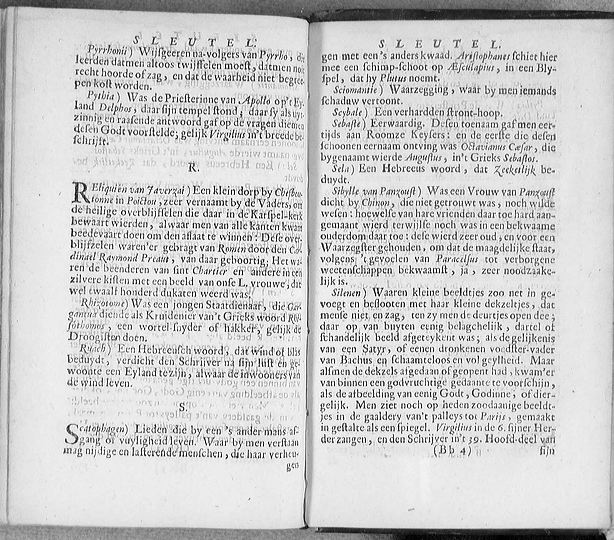 S L E U T E L.
Pyrrhonii ) Wijsgeeren na-volgers van Pyrrho, die
leerden datmen altoos twijffelen moest, datmen noit
recht hoorde of zag, en dat de waarheid niet begree-
pen kost worden.
Pythia ) Was de Priesterinne van Apollo op't Ey-
land Delphos, daar sijn tempel stond; daar sy als uyt-
zinnig en raasende antwoord gaf op de vragen die men
desen Godt voorstelde; gelijk Virgilius in't breede be-
schrijft.
R.
REliquien van Javerzai ) Een klein dorp by
tonne in Poictou, zeer vernaamt by de Vaders, om
de heilige overblijffelen die daar in de Karspel-kerk
bewaart wierden, alwaar men van alle kanten kwam
beedevaart doen om den aflaat te winnen: Dese over-
blijfzelen waren'er gebragt van Romen door den Car-
dinael Raymond Preaut, van daar geboortig, Het wa-
ren de beenderen van sint Chartier en andere in een
zilvere kisten met een beeld van onse L. vrouwe, die
wel twaalf honderd dukaten weerd was.
Rhizotome) Was een jongen Staatdienaar, die Gar-
gantua diende als Kruidenier van't Grieks woord Rhi-
sothomos, een wortel-snyder of hakker, gelijk de
Droogisten doen.
Ruach ) Een Hebreensch woord, dat wind of blis
beduydt, verdicht den Schrijver na sijn lust en ge-
woonte een Eyland te zijn, alwaar de inwooners van
de wind leven.
S.
SCatophagen) Lieden die by een's ander mans af-
gang of vuyligheid leven. Waar by men verstaan
mag nijdige en lasterende menschen, die haar verheu-
gen
S L E U T E L.
gen met een's anders kwaad. Aristophanes schiet hier
mee een schimp-schoot op Æsculapius, in een Bly-
spel, dat hy Plutus noemt.
Sciomantie ) Waarzegging, waar by men iemands
schaduw vertoont.
Scybale ) Een verhardden stront-hoop.
Sebaste ) Eerwaardig. Desen toenaam gaf men eer-
tijds aan Roomze Keysers: en de eerste die desen
schoonen eernaam ontving was Octavianus Cæsar, die
bygenaamt wierde Augustus, in't Grieks Sebastos.
Sela ) Een Hebreeus woord, dat Zeekelijk be-
duydt.
Sibylle van Panzoust ) Was een Vrouw van Panzoust
dicht by Chinon, die niet getrouwt was, noch wilde
wesen: hoewelse van hare vrienden daar toe hard aan-
gemaant wierd terwijlse noch was in een bekwaame
ouderdom daar toe: dese wierd zeer oud, en voor een
Waarzegster gehouden, om dat de maagdelijke staat,
volgens 't gevoelen van Paracelsus tot verborgene
weetenschappen bekwaamst, ja, zeer noodzaake-
lijk is.
Silenen ) Waaren kleine beeldtjes zoo net in ge-
voegt en beslooten met haar kleine dekzeltjes, dat
mense niet en zag, ten zy men de deurtjes open dee;
daar op van buyten eenig belachelijk, dartel of
schandelijk beeld afgeteykent was; als de gelijkenis
van een Satyr, of eenen dronkenen voedster-vader
van Bachus en schaamteloos en vol geylheid. Maar
alsmen de dekzels afgedaan of geopent had, kwam'er
van binnen een godvruchtige gedaante te voorschijn,
als de afbeelding van eenig Godt, Godinne, of dier-
gelijk. Men ziet noch op heden zoodaanige beeldt-
jes in de gaaldery van't palleys tot Parijs, gemaakt
in gestalte als een spiegel. Virgilius in de 6. sijner Her-
der zangen, en den Schrijver in't 39. Hoofd-deel van
(Bb 4) sijn